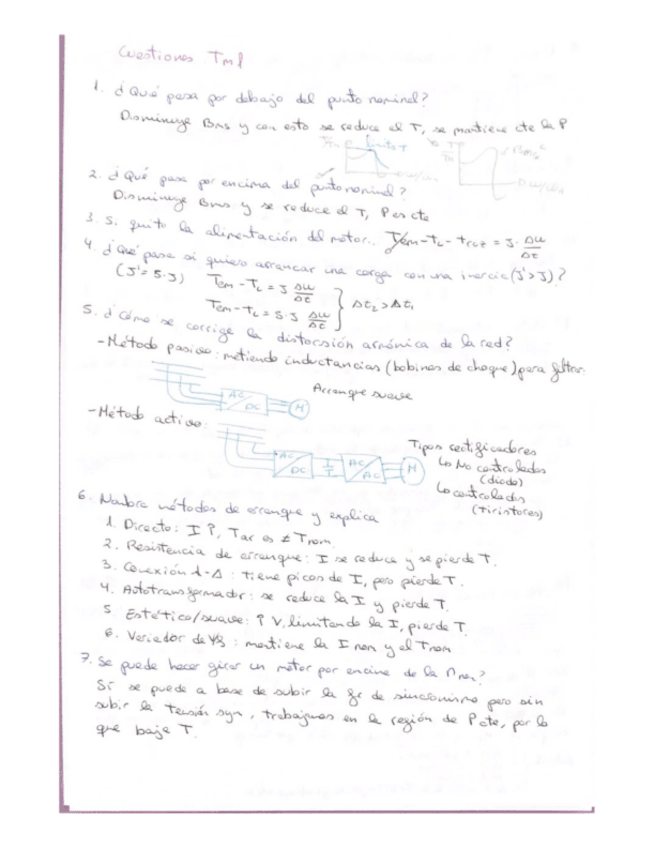 Cuestiones Tm1
1. ¿Qué pasa por debajo del punto nominal?
Disminuye Bms y con esto se reduce el T, se mantiene cte la P
límite T
2. ¿Qué pasa por encima del punto nominal?
Disminuye Bms y se reduce el T, P es cte
3. Si quito la alimentación del motor.. Tem - TL - troz = J · Δω/Δt
4. ¿Qué pasa si quiero arrancar una carga con una inercia (J'>J)?
(J'=5·J) Tem - TL = J Δω/Δt
Tem - TL = 5·J Δω/Δt } Δt2 > Δt1
5. ¿Cómo se corrige la distorsión armónica de la red?
- Método pasivo: metiendo inductancias (bobinas de choque) para filtrar
Arranque suave
AC
DC
M
- Método activo:
AC
DC
AC
AC
M
Tipos rectificadores
↳ No controlados
(diodo)
↳ controlados
(Tiristores)
6. Nombra métodos de arranque y explica
1. Directo: I↑, Tar es ≠ Tnom.
2. Resistencia de arranque: I se reduce y se pierde T.
3. Conexión λ-Δ: tiene picos de I, pero pierde T.
4. Autotransformador: se reduce la I y pierde T.
5. Estático/suave: ↑V, limitando la I, pierde T.
6. Variador de V/f: mantiene la I nom y el Tnom
7. Se puede hacer girar un motor por encima de la nnom?
Sí se puede a base de subir la fr de sincronismo pero sin
subir la tensión syn, trabajamos en la región de P cte, por lo
que baja T.